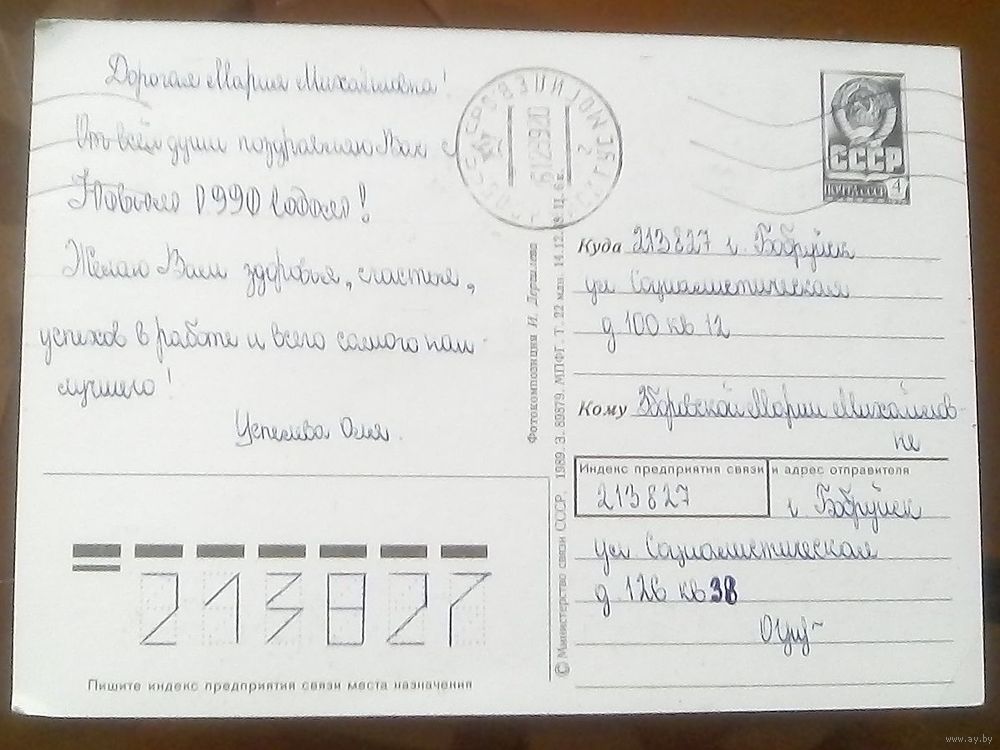 Дорогая Мария Михайловна!
От всей души поздравляю Вас с
Новым 1990 годом!
Желаю Вам здоровья, счастья,
успехов в работе и всего самого наи
лучшего!
Оля.
СССР
ПОЧТА СССР
4
Куда 213827 г. Бобруйск
ул Социалистическая
д 100 кв 12
Кому Зборевской Марии Михайлов-
не
Индекс предприятия связи и адрес отправителя
213827 г Бобруйск
ул Социалистическая
д. 126 кв 38
213827
Пишите индекс предприятия связи места назначения
Фотокомпозиция И. Дергилева
© Министерство связи СССР, 1989. З. 89879. МПФГ. Т. 22 млн. 14.12.88. Ц. 6 к.
www.ay.by